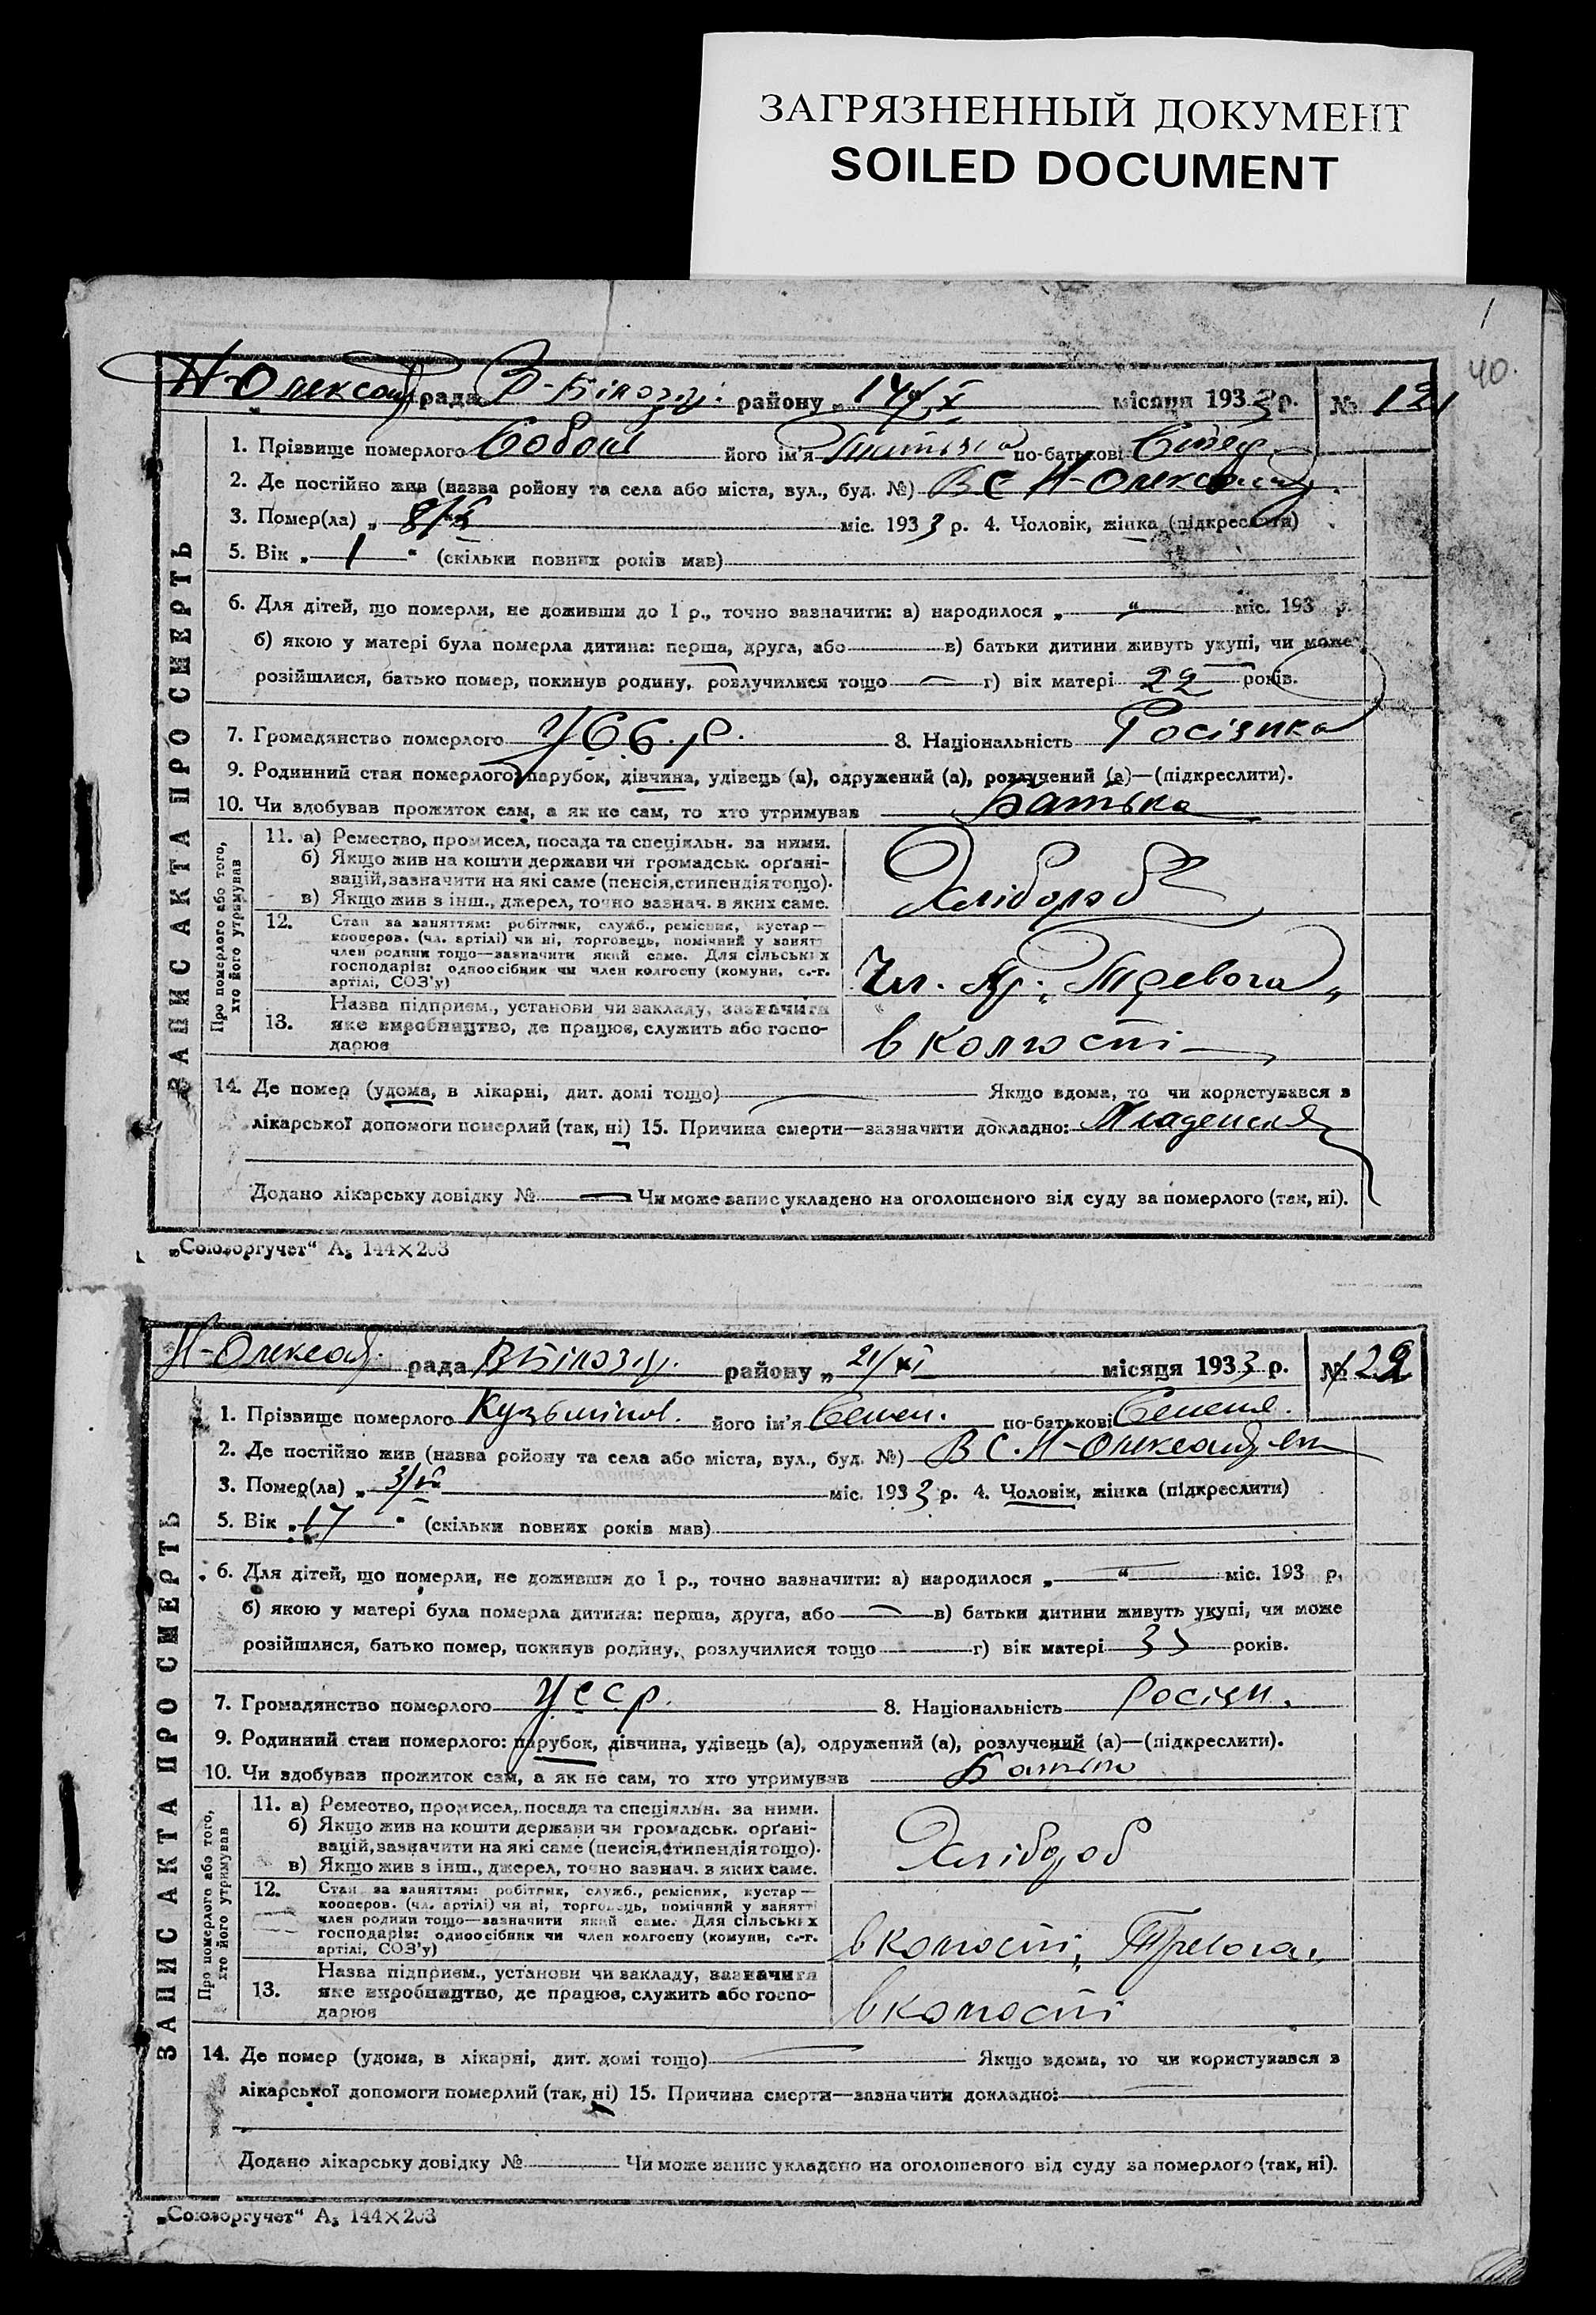 ЗАГРЯЗНЕННЫЙ ДОКУМЕНТ
SOILED DOCUMENT
40.
Н-Олександ рада В-Білозір. району „ 14/X місяця 1933 р. № 121
1. Прізвище померлого його ім'я по-батькові Стеф
2. Де постійно жив (назва ройону та села або міста, вул., буд. №) В С Н-Олександ.
3. Помер(ла) „ міс. 1933 р. 4. Чоловік, жінка (підкреслити)
5. Вік „ 1 “ (скільки повних років мав)
6. Для дітей, що померли, не доживши до 1 р., точно зазначити: а) народилося „ “ міс. 193 р.
б) якою у матері була померла дитина: перша, друга, або в) батьки дитини живуть укупі, чи може
розійшлися, батько помер, покинув родину, розлучилися тощо г) вік матері 22 років.
7. Громадянство померлого УССР. 8. Національність Росіянка
9. Родинний стан померлого: парубок, дівчина, удівець (а), одружений (а), розлучений (а)—(підкреслити).
10. Чи здобував прожиток сам, а як не сам, то хто утримував Батька
ЗАПИС АКТА ПРО СМЕРТЬ
Про померлого або того, хто його утримував
11. а) Ремество, промисел, посада та спеціяльн. за ними.
б) Якщо жив на кошти держави чи громадськ. орґані-
зацій, зазначити на які саме (пенсія, стипендія тощо).
в) Якщо жив з інш., джерел, точно зазнач. з яких саме.
Хлібороб
12. Стан за заняттям: робітник, служб., ремісник, кустар—
кооперов. (чл. артілі) чи ні, торговець, помічний у занятті
член родини тощо—зазначити який саме. Для сільських
господарів: одноосібник чи член колгоспу (комуни, с.-г.
артілі, СОЗ'у)
Чл. Ар. „Тревога„
13. Назва підприєм., установи чи закладу, зазначити
яке виробництво, де працює, служить або госпо-
дарює
в колгоспі
14. Де помер (удома, в лікарні, дит. домі тощо) Якщо вдома, то чи користувався з
лікарської допомоги померлий (так, ні) 15. Причина смерти—зазначити докладно: Младенська
Додано лікарську довідку № Чи може запис укладено на оголошеного від суду за померлого (так, ні).
„Союзоргучет“ А₅ 144×203
Н-Олександ. рада В Білозір. району „ 21/XI місяця 1933 р. № 122
1. Прізвище померлого Кузьмінов. його ім'я Семен. по-батькові Семене.
2. Де постійно жив (назва ройону та села або міста, вул., буд. №) В С. Н-Олександ-ка
3. Помер(ла) „ міс. 1933 р. 4. Чоловік, жінка (підкреслити)
5. Вік „ 17 “ (скільки повних років мав)
6. Для дітей, що померли, не доживши до 1 р., точно зазначити: а) народилося „ “ міс. 193 р.
б) якою у матері була померла дитина: перша, друга, або в) батьки дитини живуть укупі, чи може
розійшлися, батько помер, покинув родину, розлучилися тощо г) вік матері 35 років.
7. Громадянство померлого УССР. 8. Національність Росіян.
9. Родинний стан померлого: парубок, дівчина, удівець (а), одружений (а), розлучений (а)—(підкреслити).
10. Чи здобував прожиток сам, а як не сам, то хто утримував Батько
ЗАПИС АКТА ПРО СМЕРТЬ
Про померлого або того, хто його утримував
11. а) Ремество, промисел, посада та спеціяльн. за ними.
б) Якщо жив на кошти держави чи громадськ. орґані-
зацій, зазначити на які саме (пенсія, стипендія тощо).
в) Якщо жив з інш., джерел, точно зазнач. з яких саме.
Хлібороб
12. Стан за заняттям: робітник, служб., ремісник, кустар—
кооперов. (чл. артілі) чи ні, торговець, помічний у занятті
член родини тощо—зазначити який саме. Для сільських
господарів: одноосібник чи член колгоспу (комуни, с.-г.
артілі, СОЗ'у)
в колгоспі „Тревога„
13. Назва підприєм., установи чи закладу, зазначити
яке виробництво, де працює, служить або госпо-
дарює
в колгоспі
14. Де помер (удома, в лікарні, дит. домі тощо) Якщо вдома, то чи користувався з
лікарської допомоги померлий (так, ні) 15. Причина смерти—зазначити докладно:
Додано лікарську довідку № Чи може запис укладено на оголошеного від суду за померлого (так, ні).
„Союзоргучет“ А₅ 144×203